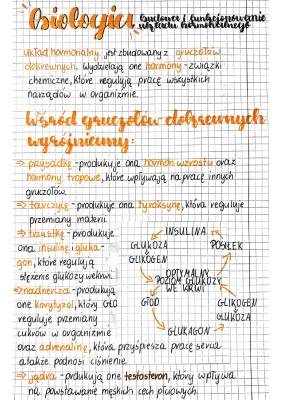 Biologia Budowa i funkcjonowanie
układu hormonalnego
układ hormonalny jest zbudowany z gruczołów
dokrewnych. Wydzielają one hormony - związki
chemiczne, które regulują pracę wszystkich
narządów w organizmie.
Wśród gruczołów dokrewnych
wyróżniamy:
⇒ przysadkę - produkuje ona hormon wzrostu oraz
hormony tropowe, które wpływają na pracę innych
gruczołów.
⇒ tarczycę - produkuje ona tyroksynę, która reguluje
przemianę materii.
⇒ trzustkę - produkuje
ona insulinę i gluka-
gon, które regulują
stężenie glukozy we krwi.
⇒ nadnercza - produkują
one kortyzol, który
reguluje przemiany
cukrów w organizmie
oraz adrenalinę, która przyspiesza pracę serca
a także podnosi ciśnienie.
⇒ jądra - prdukują one testosteron, który wpływa
na powstawanie męskich cech płciowych.
INSULINA
GLUKOZA
↓
GLIKOGEN
POSIŁEK
OPTYMALNY
POZIOM GLUKOZY
WE KRWI
GŁÓD
GLIKOGEN
↓
GLUKOZA
GLUKAGON